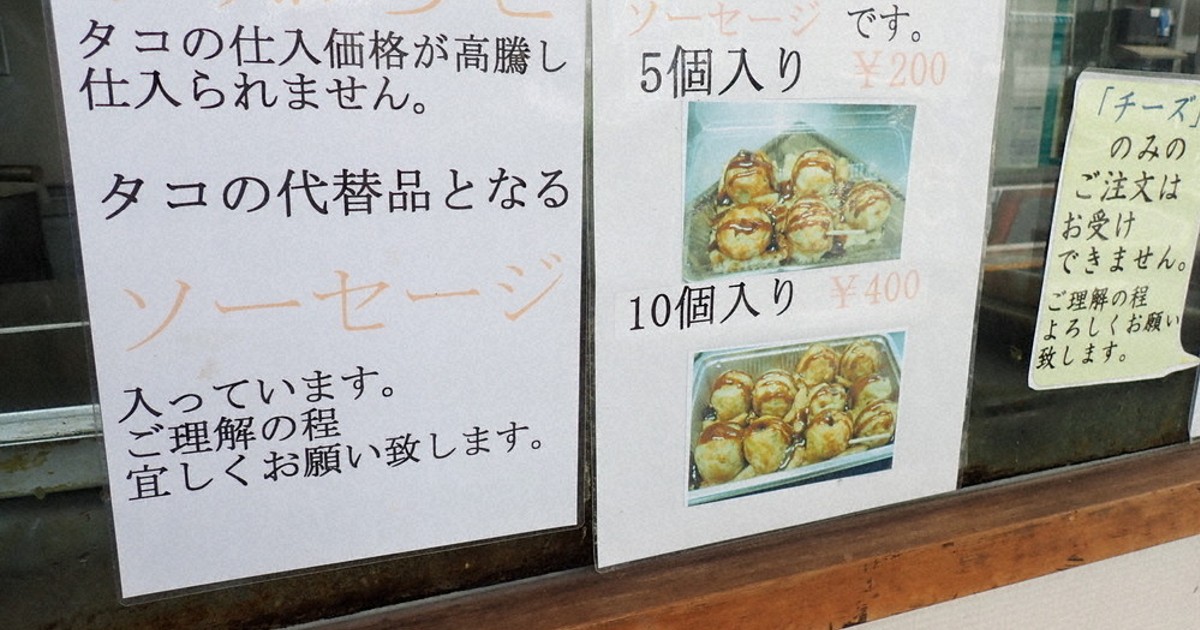 タコの仕入価格が高騰し
仕入られません。
タコの代替品となる
ソーセージ
入っています。
ご理解の程
宜しくお願い致します。
ソーセージ です。
5個入り ¥200
10個入り ¥400
「チーズ」
のみの
ご注文は
お受け
できません。
ご理解の程
よろしくお願い
致します。